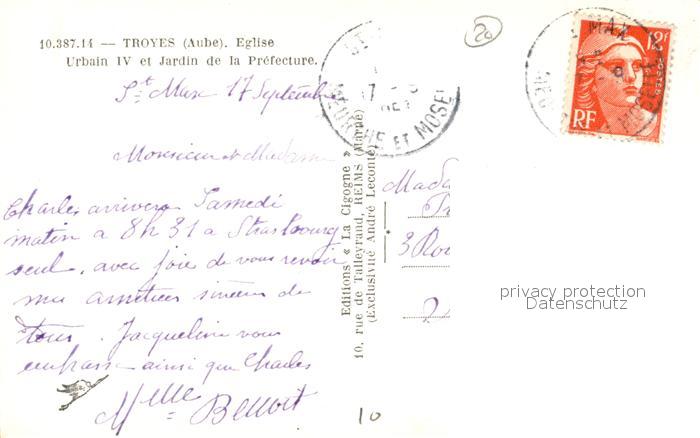 10.387.14 — TROYES (Aube). Eglise
Urbain IV et Jardin de la Préfecture.
St Max 17 Septembre
Monsieur et Madame
Charles arrivera Samedi
matin a 8h 31 a Strasbourg
seul, avec joie de vous revoir
mes amitiées sincères de
tous. Jacqueline vous
embrasse ainsi que Charles
Mme Benoit
Editions « La Cigogne »
10, rue de Talleyrand, REIMS (Marne)
(Exclusivité André Leconte)
MEURTHE ET MOSEL
12f
POSTES
RF
Mada
3 Rou
privacy protection
Datenschutz
20
10